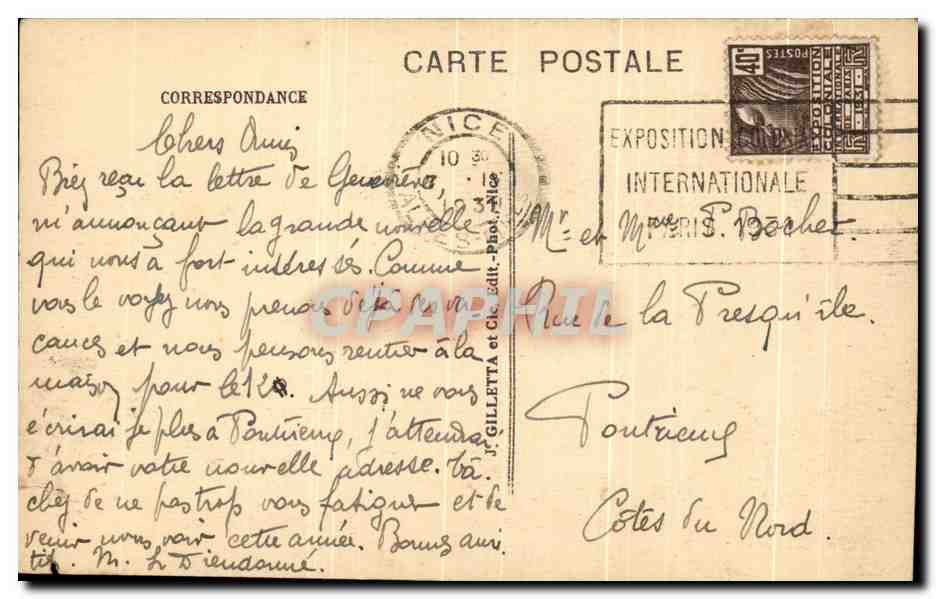 CARTE POSTALE
CORRESPONDANCE
Chers Amis
Bien reçu la lettre de Geneviève,
m'annonçant la grande nouvelle
qui nous a fort intéressés. Comme
vous le voyez nous prenons déjà des va
cances et nous pensons rentrer à la
maison pour le 12. Aussi ne vous
écrirai je plus à Pontrieux, j'attendrai
d'avoir votre nouvelle adresse. Tâ
chez de ne pas trop vous fatiguer et de
venir nous voir cette année. Bonnes ami
tiés. M. Le Dieudonné.
J. GILLETTA et Cie, Edit.-Phot., Nice
NICE
10 30
1931
EXPOSITION COLONIALE
INTERNATIONALE
PARIS
40c
POSTES
EXPOSITION
COLONIALE
INTERNATIONALE
DE PARIS
1931
Mr et Mme P. Bocher.
Rue de la Presqu'île.
Pontrieux
Côtes du Nord.
CPAPHIL